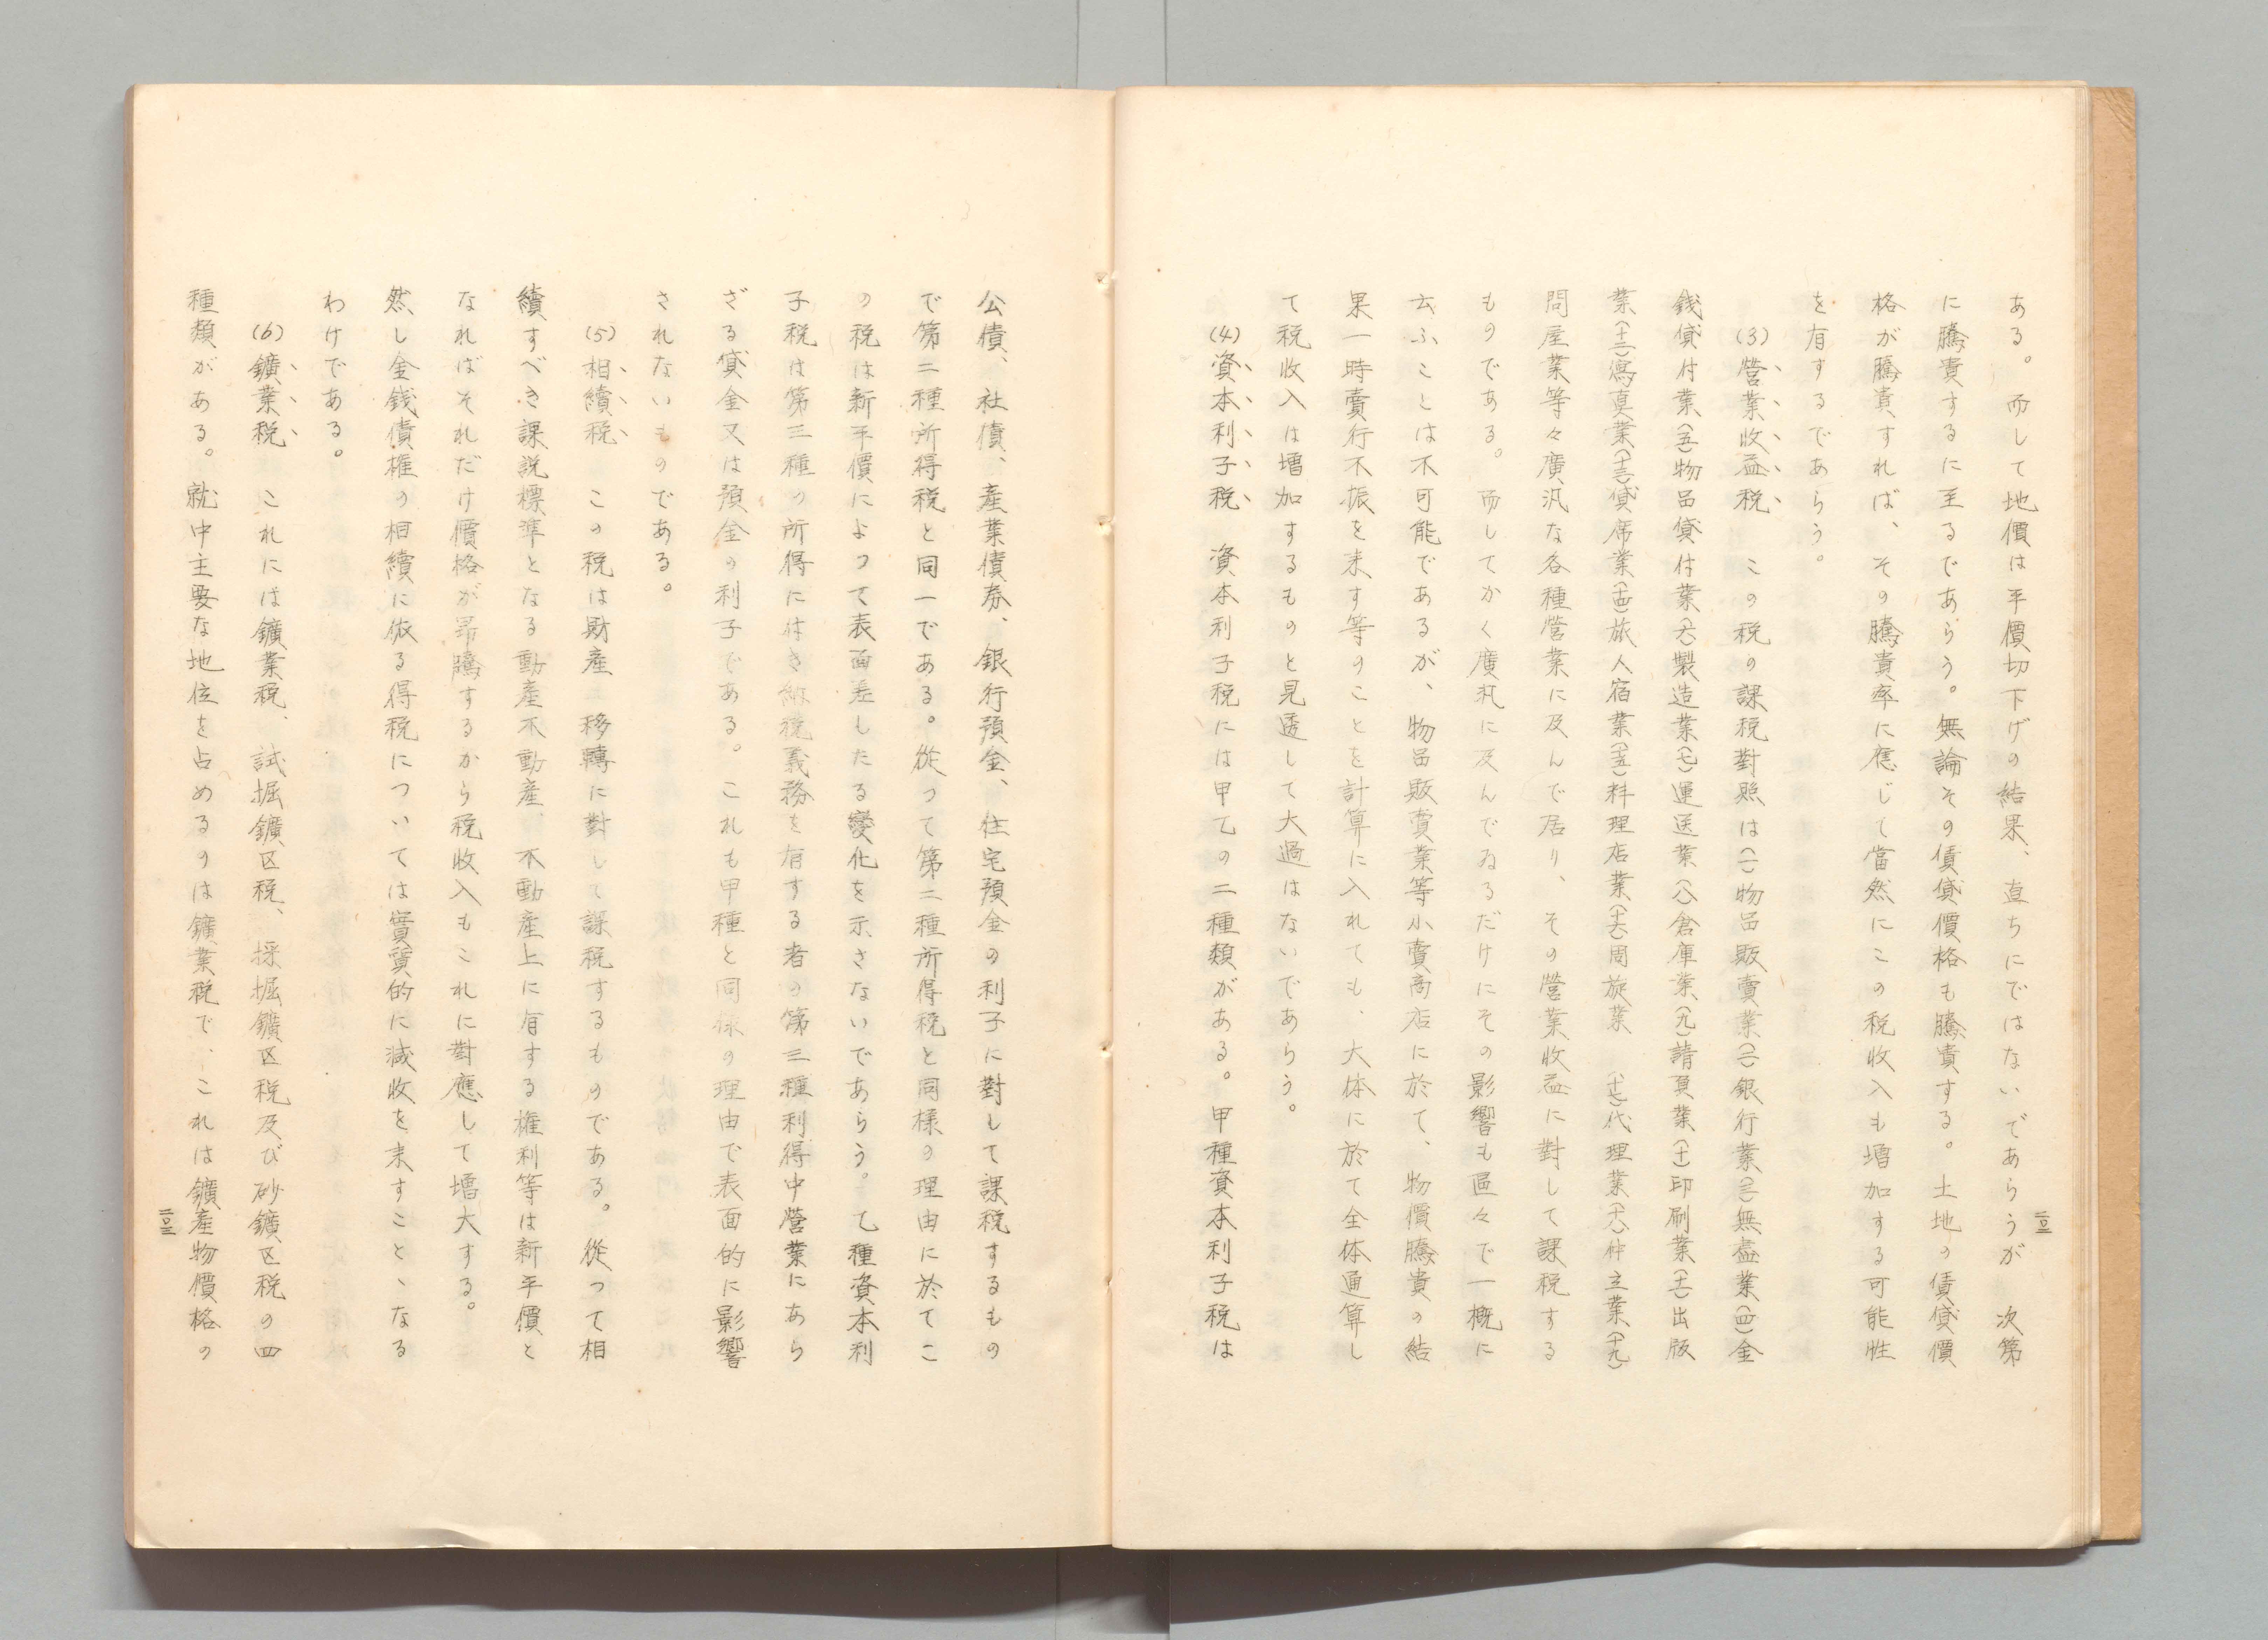 ある。而して地價は平價切下げの結果、直ちにではないであらうが 次第
に騰貴するに至るであらう。無論その賃貸價格も騰貴する。土地の賃貸價
格が騰貴すれば、その騰貴率に應じて當然にこの税收入も増加する可能性
を有するであらう。
(3)營業收益税　この税の課税對照は(一)物品販賣業(二)銀行業(三)無盡業(四)金
銭貸付業(五)物品貸付業(六)製造業(七)運送業(八)倉庫業(九)請負業(十)印刷業(十一)出版
業(十二)寫真業(十三)貸席業(十四)旅人宿業(十五)料理店業(十六)周旋業　(十七)代理業(十八)仲立業(十九)
問屋業等々廣汎な各種營業に及んで居り、その營業收益に對して課税する
ものである。而してかく廣汎に及んでゐるだけにその影響も區々で一概に
云ふことは不可能であるが、物品販賣業等小賣商店に於て、物價騰貴の結
果一時賣行不振を来す等のことを計算に入れても、大体に於て全体通算し
て税收入は増加するものと見透して大過はないであらう。
(4)資本利子税　資本利子税には甲乙の二種類がある。甲種資本利子税は
二〇二
公債、社債、産業債券、銀行預金、住宅預金の利子に對して課税するもの
で第二種所得税と同一である。從つて第二種所得税と同様の理由に於てこ
の税は新平價によつて表面差したる變化を示さないであらう。乙種資本利
子税は第三種の所得に付き納税義務を有する者の第三種利得中營業にあら
ざる貸金又は預金の利子である。これも甲種と同様の理由で表面的に影響
されないものである。
(5)相續税　この税は財産ニ移轉に對して課税するものである。從つて相
續すべき課説標準となる動産不動産、不動産上に有する権利等は新平價と
なればそれだけ價格が昂騰するから税收入もこれに對應して増大する。
然し金銭債権の相續に依る得税については實質的に減收を来すことゝなる
わけである。
(6)鑛業税　これには鑛業税、試掘鑛区税、採掘鑛区税及び砂鑛区税の四
種類がある。就中主要な地位を占めるのは鑛業税で、これは鑛産物價格の
二〇三